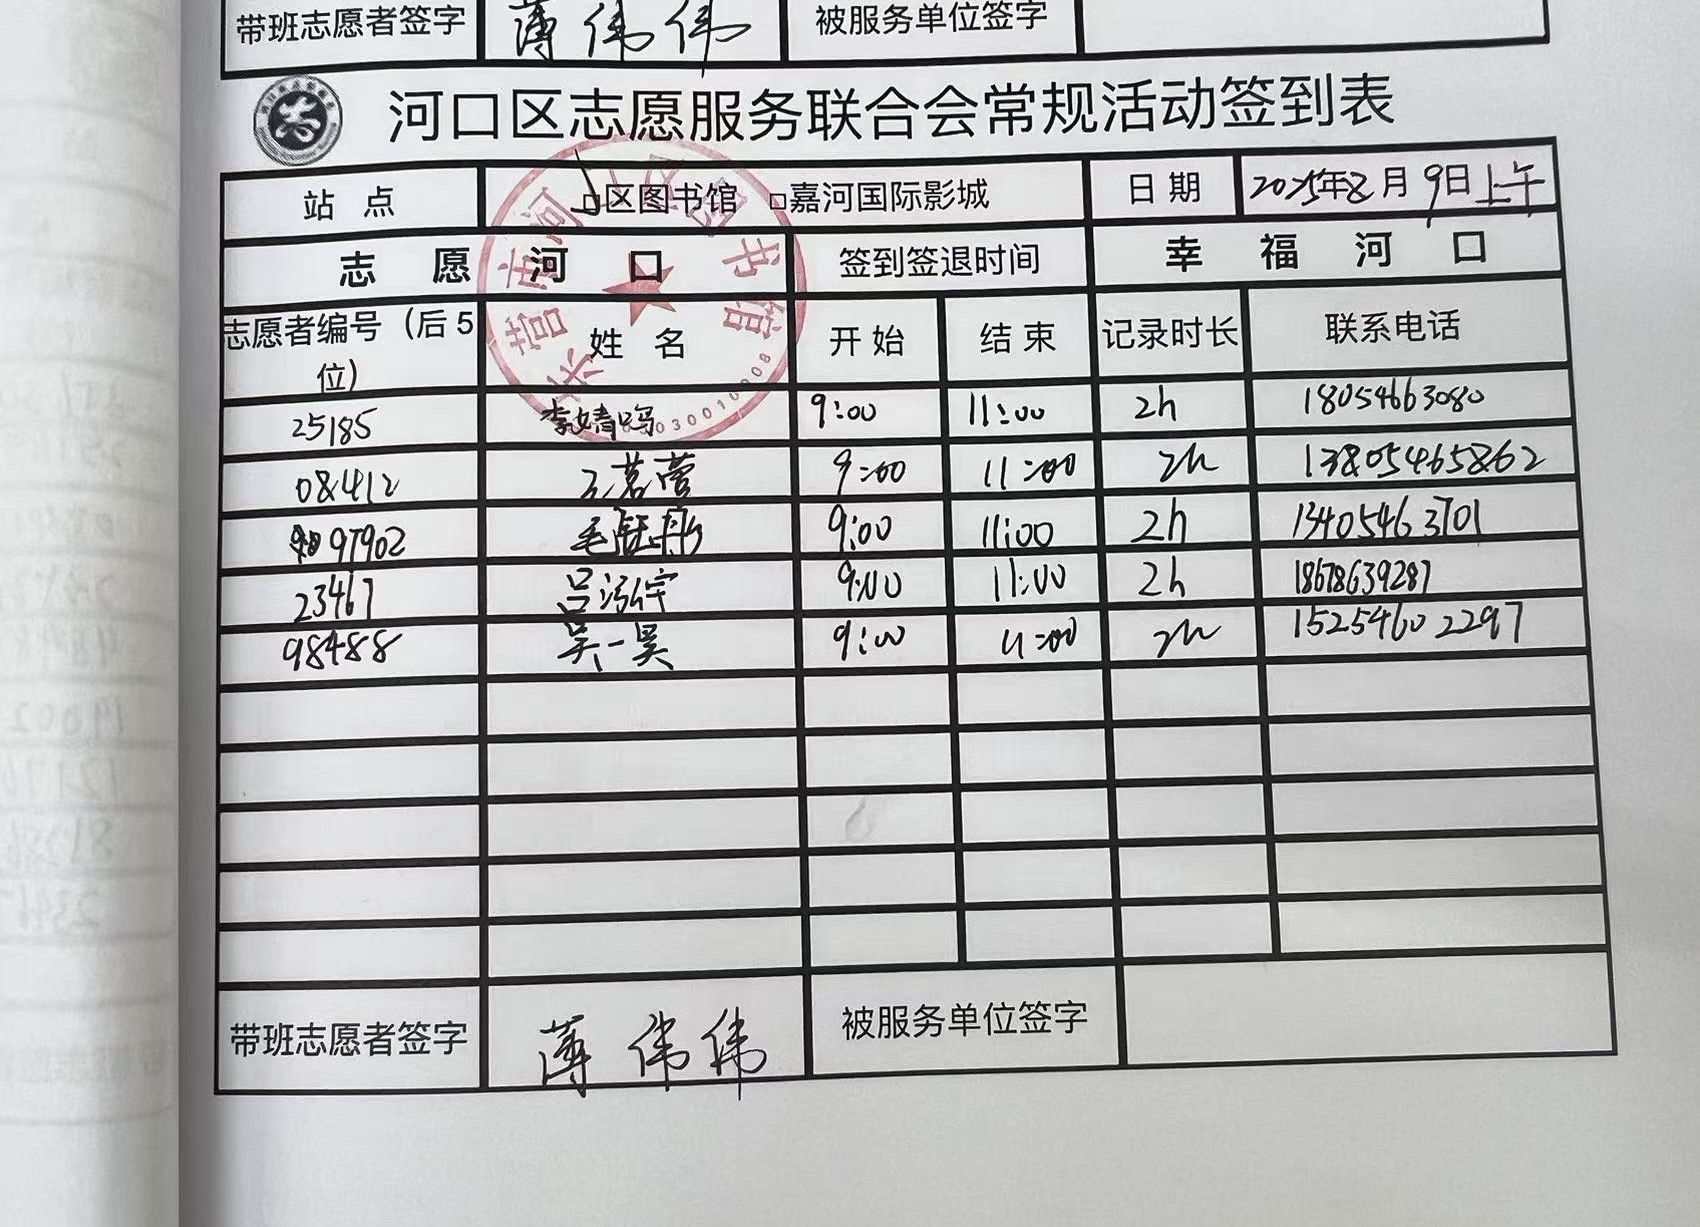 带班志愿者签字 薄伟伟 被服务单位签字
河口区志愿服务联合会常规活动签到表
站 点 □区图书馆 □嘉河国际影城 日 期 2025年8月9日上午
志 愿 河 口 签到签退时间 幸 福 河 口
志愿者编号（后5位） 姓 名 开 始 结 束 记录时长 联系电话
25185 李婧鸣 9:00 11:00 2h 18054663080
08412 王茗萱 9:00 11:00 2h 13805465862
97902 毛 9:00 11:00 2h 13405463701
23467 吕泓 9:00 11:00 2h 18678639287
98488 吴一昊 9:00 11:00 2h 15254602297
带班志愿者签字 薄伟伟 被服务单位签字